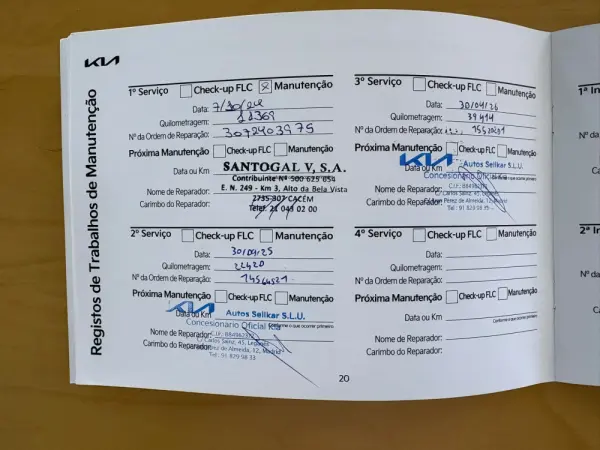 KIA
Registos de Trabalhos de Manutenção
1º Serviço Check-up FLC Manutenção
Data: 7/30/24
Quilometragem: 11369
Nº da Ordem de Reparação: 3072403975
Próxima Manutenção Check-up FLC Manutenção
Data ou Km
SANTOGAL V, S.A.
Contribuinte Nº 500 625 654
E. N. 249 - Km 3, Alto da Bela Vista
2735-307 CACÉM
Telef. 21 043 02 00
Nome de Reparador:
Carimbo do Reparador:
2º Serviço Check-up FLC Manutenção
Data: 30/09/25
Quilometragem: 22420
Nº da Ordem de Reparação:
Próxima Manutenção Check-up FLC Manutenção
Data ou Km
KIA Autos Sellkar S.L.U.
Concesionario Oficial Kia
Nome de Reparador:
Carimbo do Reparador:
C/ Carlos Sainz, 45, Leganés
de Almeida, 12, Madrid
Tel.: 91 829 98 33
3º Serviço Check-up FLC Manutenção
Data: 30/04/26
Quilometragem: 39414
Nº da Ordem de Reparação:
Próxima Manutenção Check-up FLC Manutenção
Data ou Km
KIA Autos Sellkar S.L.U.
Concesionario Oficial
Nome de Reparador:
Carimbo do Reparador:
C/ Carlos Sainz, 45, Leganés
Pérez de Almeida, 12, Madrid
Tel.: 91 829 98 33
4º Serviço Check-up FLC Manutenção
Data:
Quilometragem:
Nº da Ordem de Reparação:
Próxima Manutenção Check-up FLC Manutenção
Data ou Km
Conforme o que ocorrer primeiro
Nome de Reparador:
Carimbo do Reparador:
20
1ª In
Nº da
2ª In
Nº da